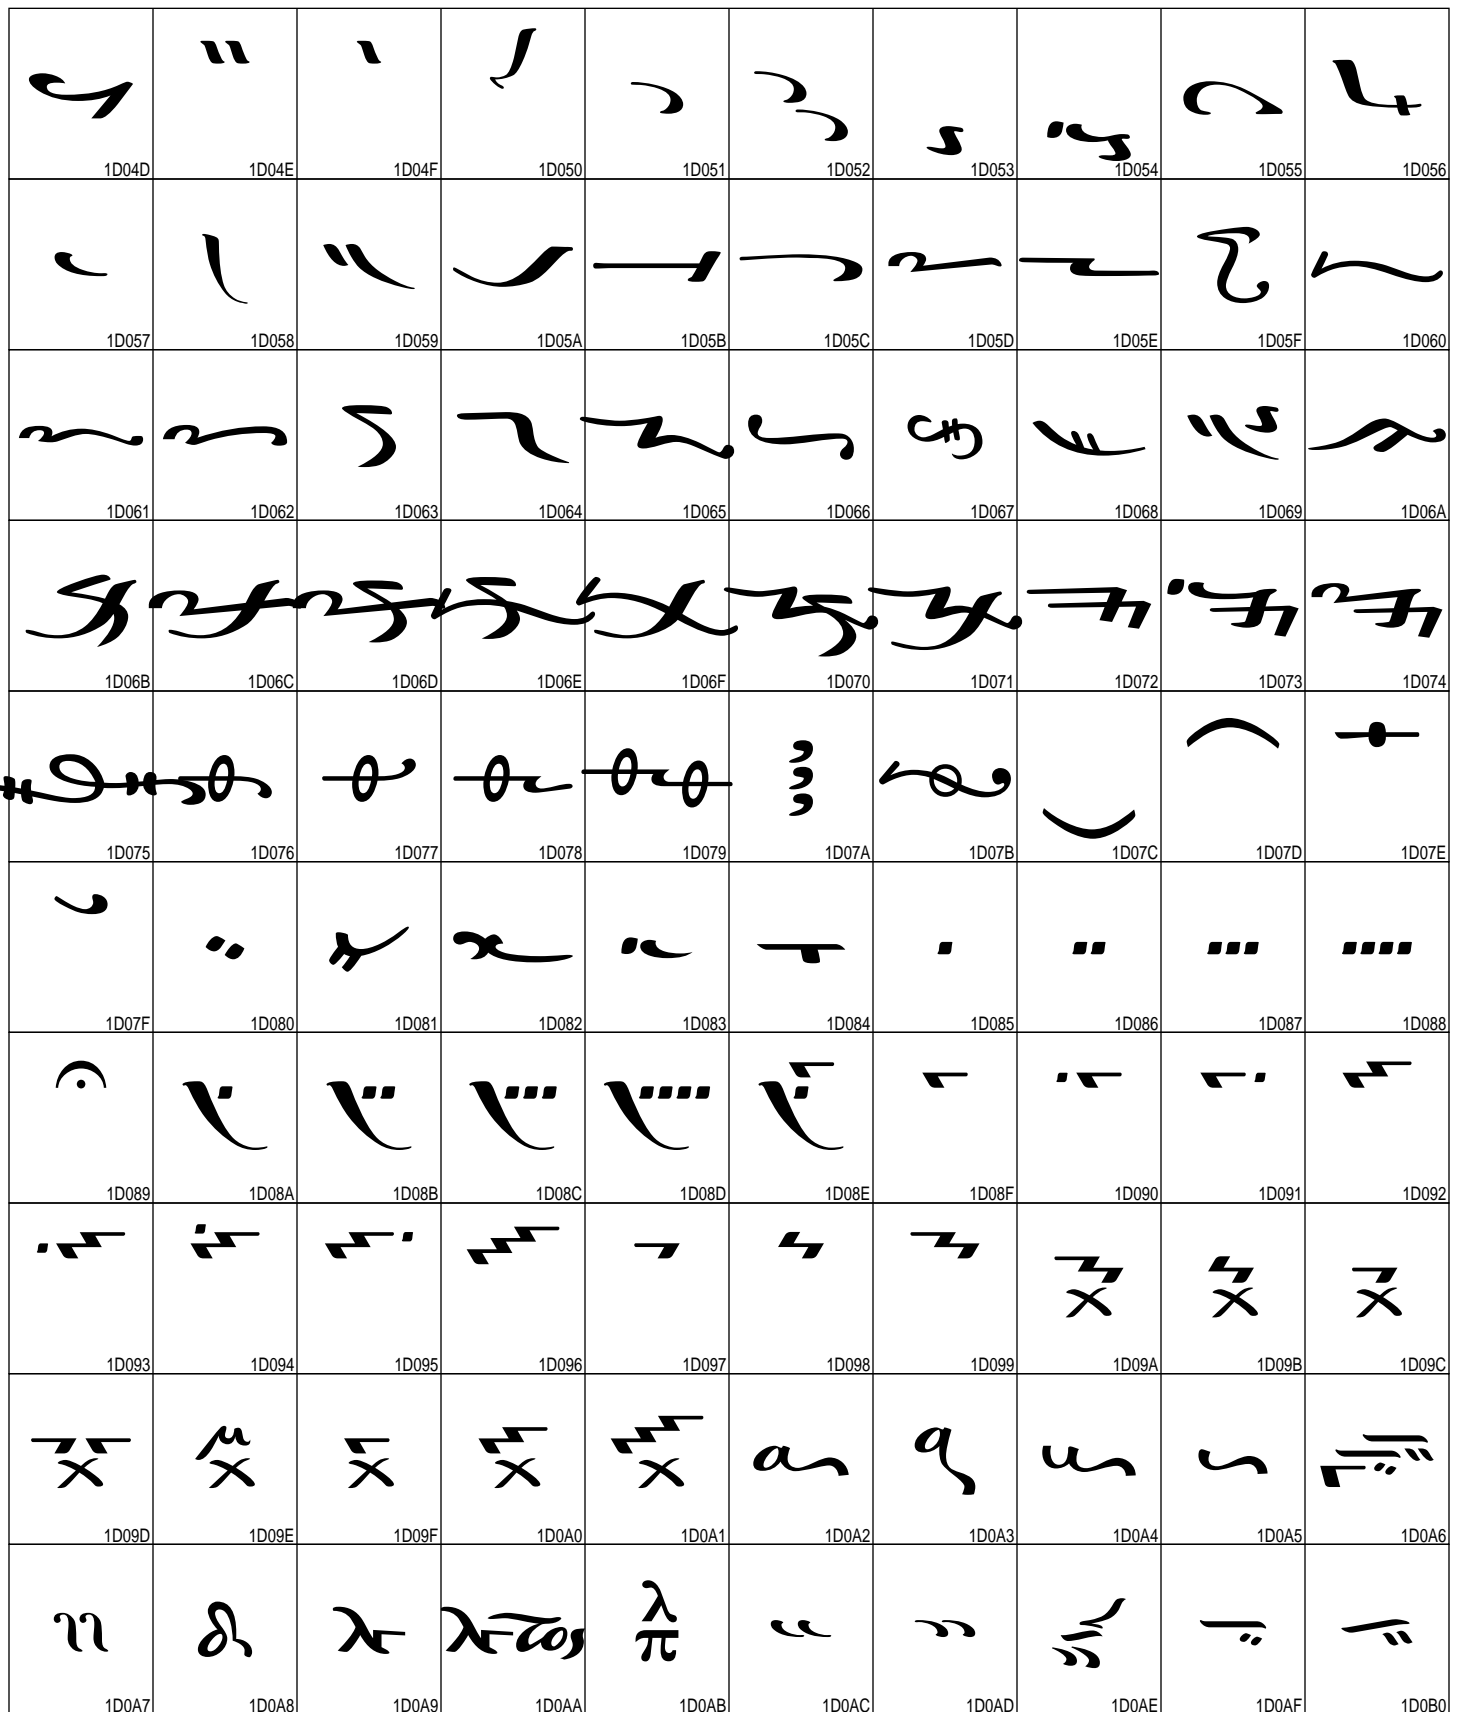 1D04D 1D04E 1D04F 1D050 1D051 1D052 1D053 1D054 1D055 1D056
1D057 1D058 1D059 1D05A 1D05B 1D05C 1D05D 1D05E 1D05F 1D060
1D061 1D062 1D063 1D064 1D065 1D066 1D067 1D068 1D069 1D06A
1D06B 1D06C 1D06D 1D06E 1D06F 1D070 1D071 1D072 1D073 1D074
1D075 1D076 1D077 1D078 1D079 1D07A 1D07B 1D07C 1D07D 1D07E
1D07F 1D080 1D081 1D082 1D083 1D084 1D085 1D086 1D087 1D088
1D089 1D08A 1D08B 1D08C 1D08D 1D08E 1D08F 1D090 1D091 1D092
1D093 1D094 1D095 1D096 1D097 1D098 1D099 1D09A 1D09B 1D09C
1D09D 1D09E 1D09F 1D0A0 1D0A1 1D0A2 1D0A3 1D0A4 1D0A5 1D0A6
1D0A7 1D0A8 1D0A9 1D0AA 1D0AB 1D0AC 1D0AD 1D0AE 1D0AF 1D0B0